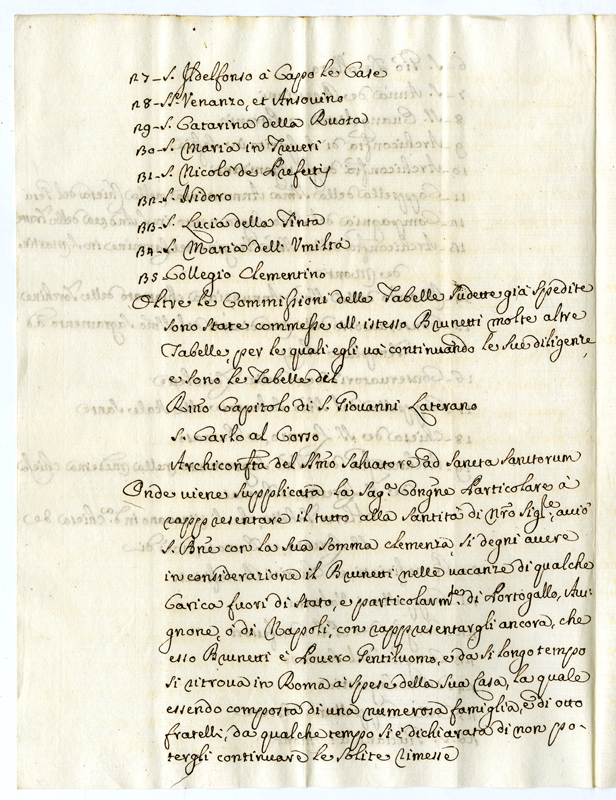 27 – S. Ildelfonso à Cappo le Case
28 – SS. Venanzo, et Ansovino
29 – S. Catarina della Ruota
30 – S. Maria in Treveri
31 – S. Nicolò de Prefetti
32 – S. Isidoro
33 – S. Lucia della Tinta
34 – S. Maria dell' Vmiltà
35 Collegio Clementino
Oltre le Commissioni delle Tabelle sudette già spedite
sono state commesse all' istesso Brunetti molte altre
Tabelle, per le quali egli và continuando le sue diligenze,
e sono le Tabelle del
Rmo Capitolo di S. Giovanni Laterano
S. Carlo al Corso
Archiconfta del SSmo Salvatore ad Sancta Sanctorum
Onde viene supplicata la Sagra Congne Particolare à
rappresentare il tutto alla Santità di Nro Sigre, acciò
S. Bne con la sua somma clemenza si degni avere
in considerazione il Brunetti nelle vacanze di qualche
Carica fuori di Stato, e particolarmte di Portogallo, Avi-
gnone, ò di Nappoli, con rappresentargli ancora, che
esso Brunetti è Povero Gentiluomo, e da sì longo tempo
si ritrova in Roma à spese della sua Casa, la quale
essendo composta di una numerosa famiglia, e di otto
fratelli, da qualche tempo si è dichiarata di non po-
tergli continuare le solite rimesse